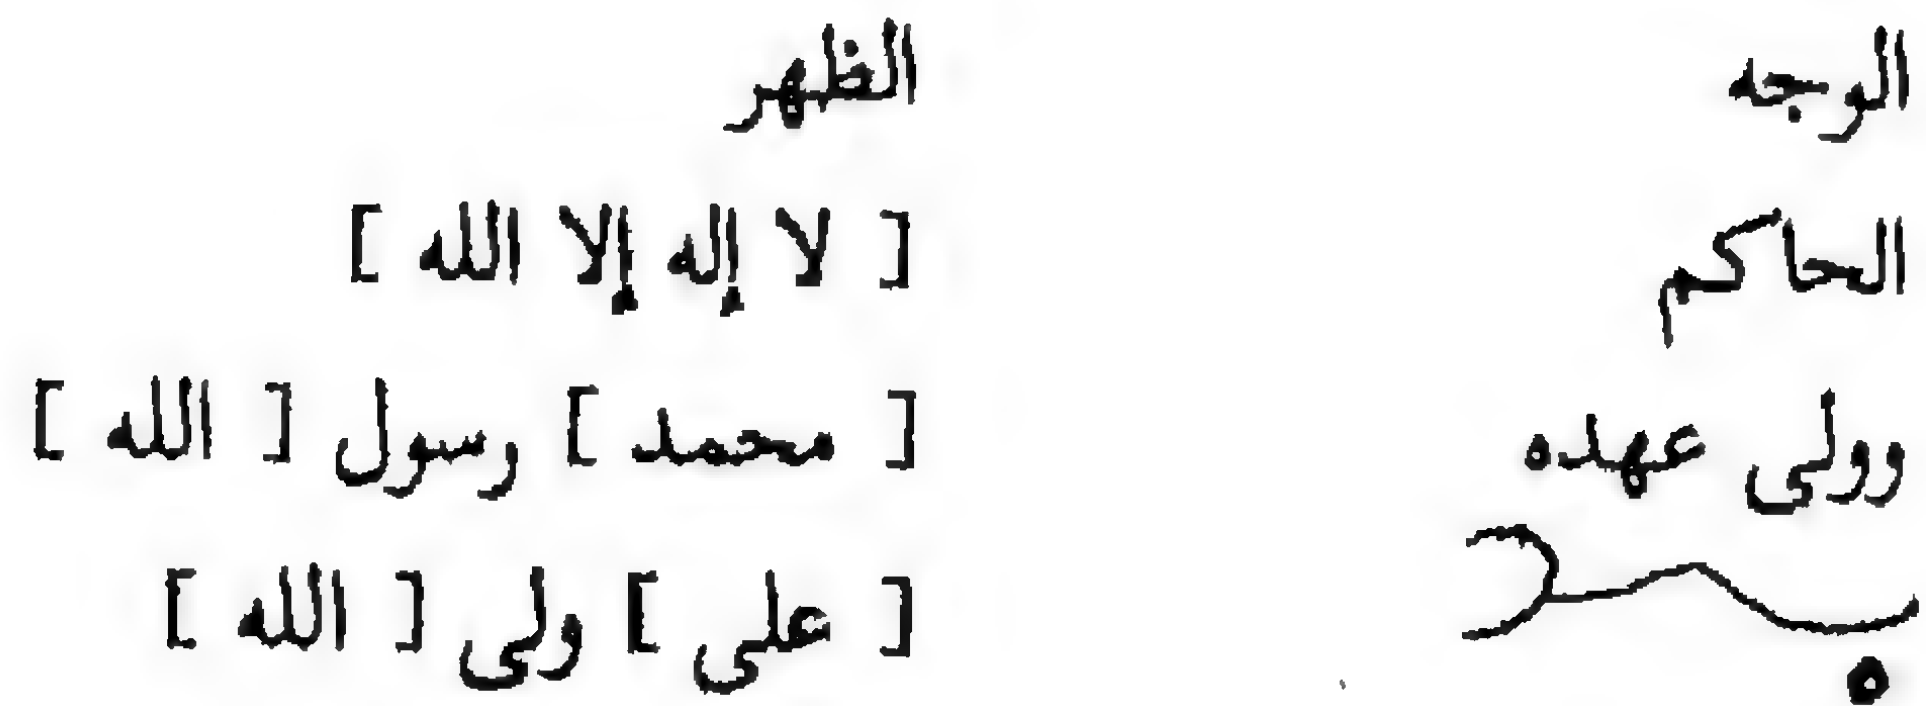 الوجه
الحاكم
وولى عهده
الظهر
[ لا إله إلا الله ]
[ محمد ] رسول [ الله ]
[ على ] ولى [ الله ]